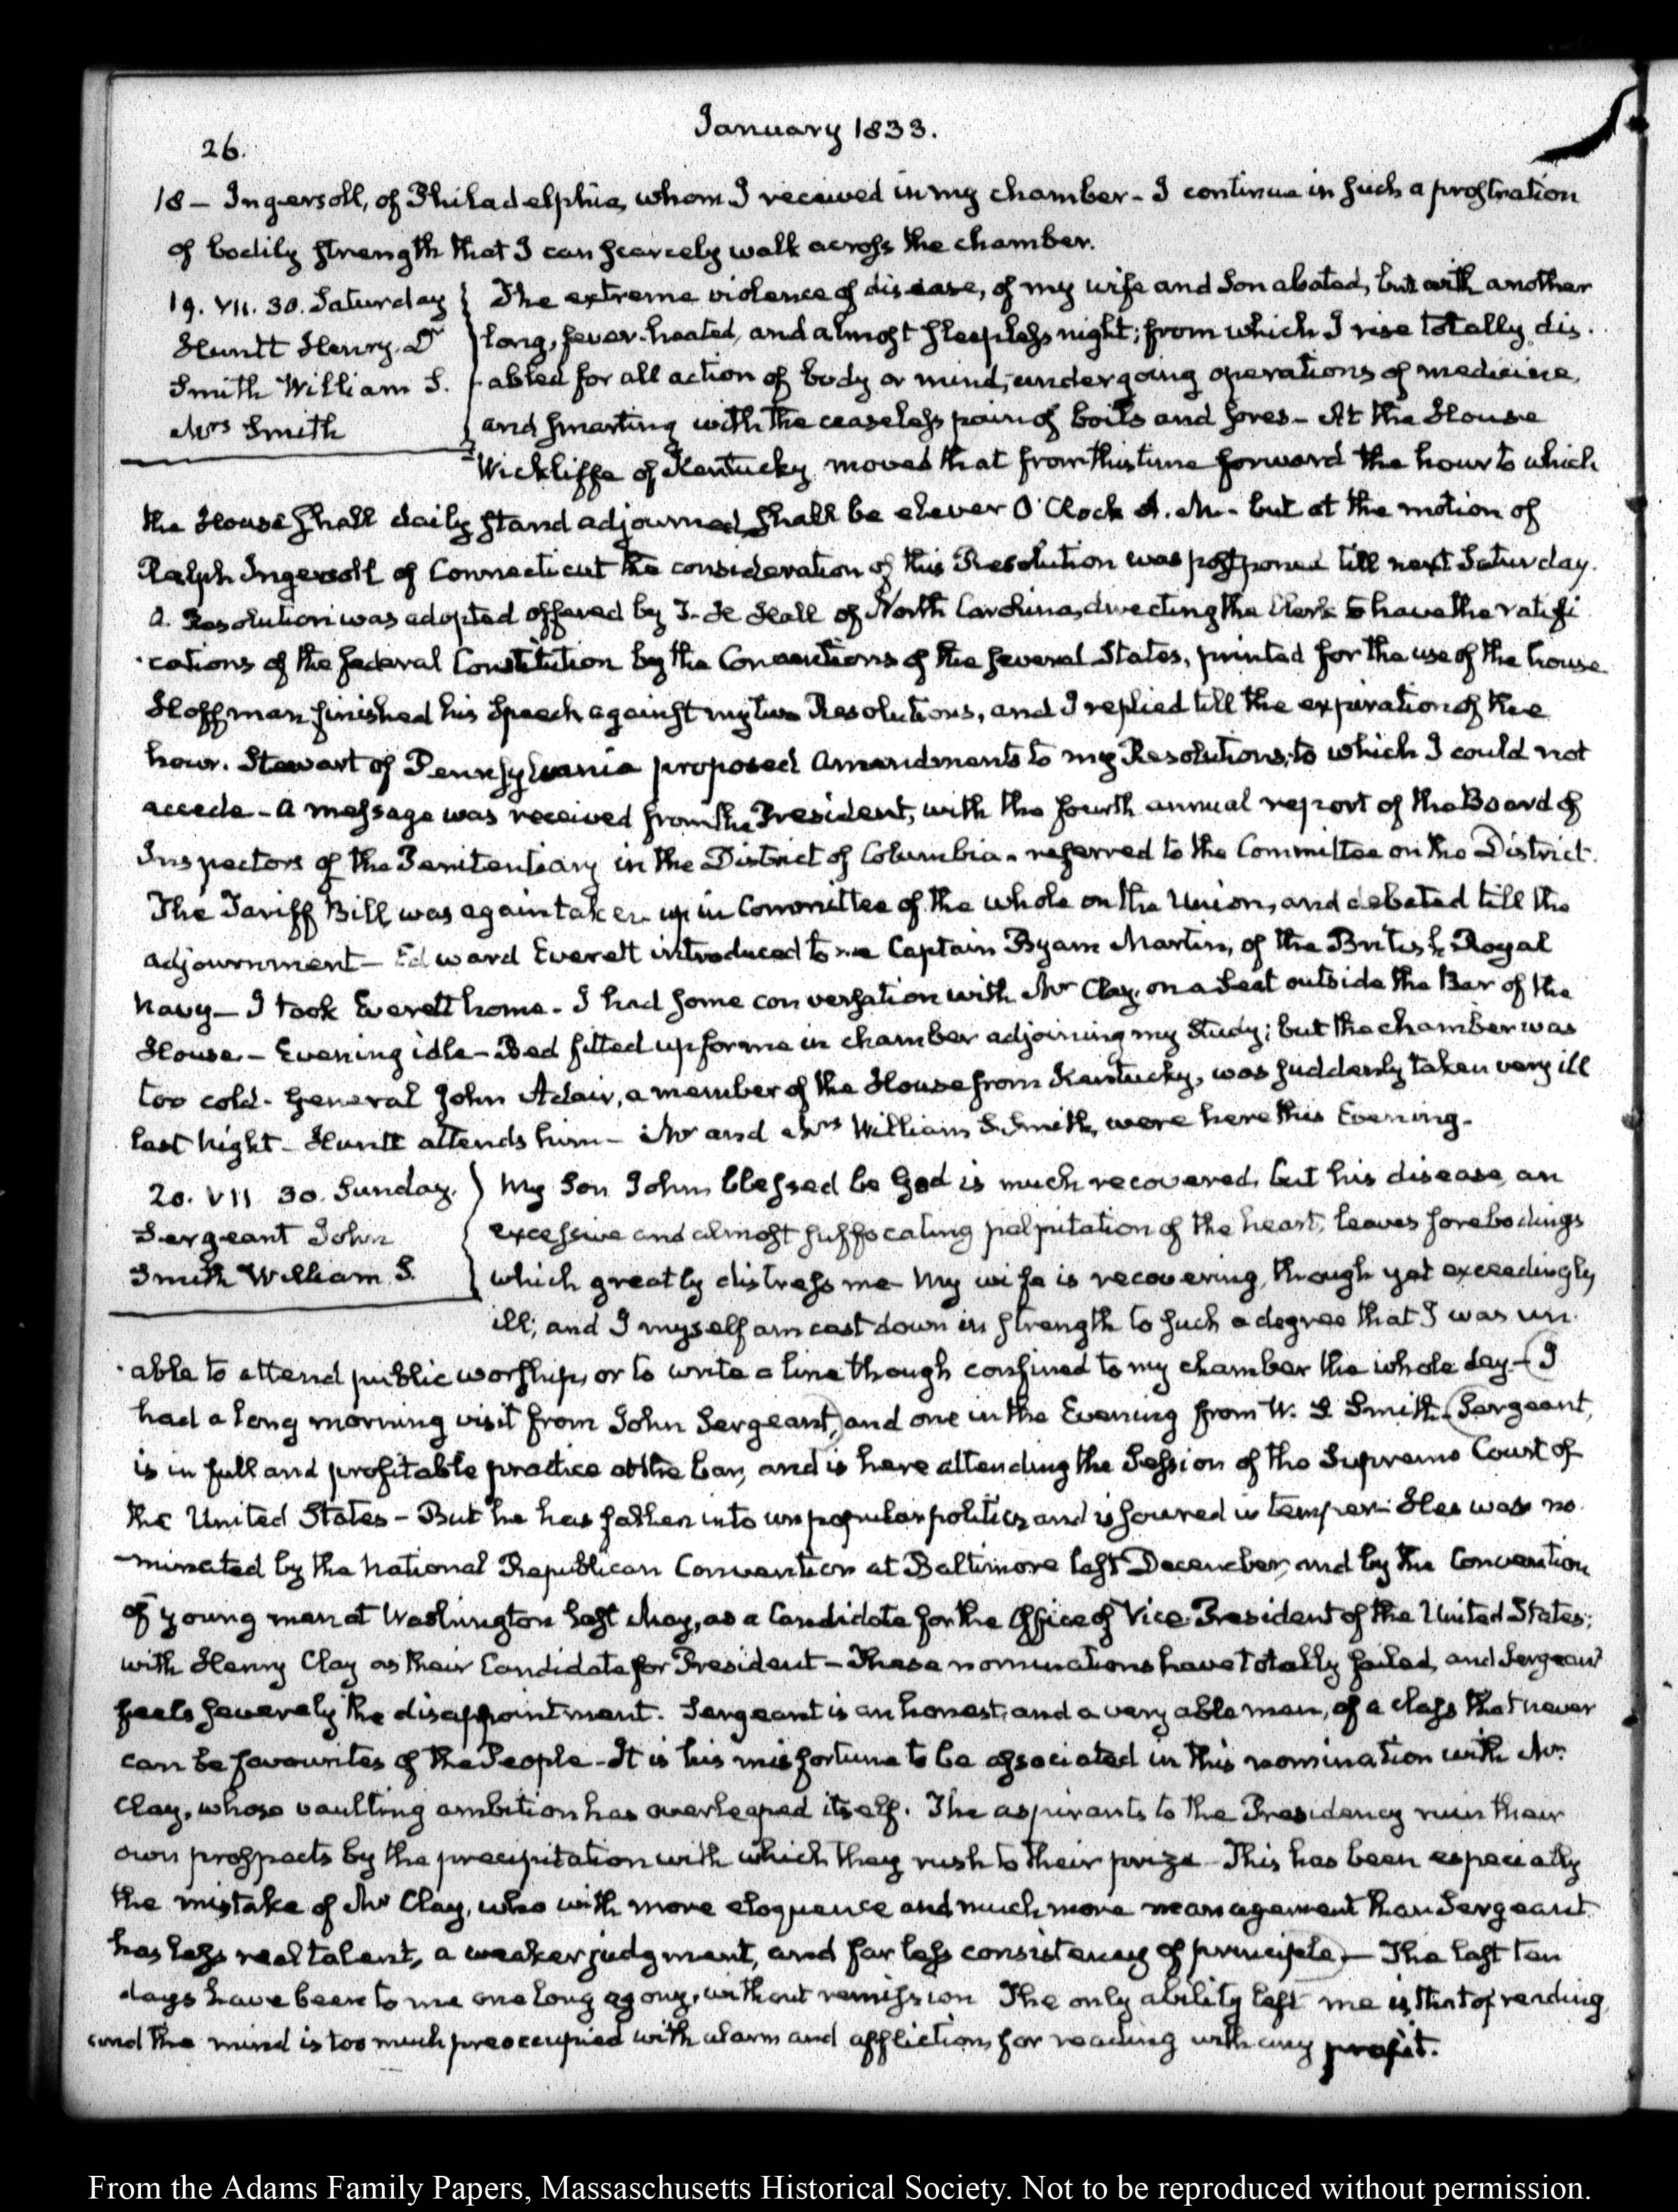 January 1833.
26.
18 – Ingersoll, of Philadelphia, whom I received in my chamber – I continue in such a prostration
of bodily strength that I can scarcely walk across the chamber.
19. VII. 30. Saturday
Huntt Henry. Dr
Smith William S.
Mrs Smith
The extreme violence of disease, of my wife and Son abated, but with another
long, fever-heated, and almost sleepless night; from which I rise totally dis-
-abled for all action of body or mind; undergoing operations of medicine,
and smarting with the ceaseless pain of boils and sores – At the House
Wickliffe of Kentucky moved that from this time forward the hour to which
the House shall daily stand adjourned, shall be eleven O'Clock A. M. – but at the motion of
Ralph Ingersoll of Connecticut the consideration of this Resolution was postponed till next Saturday.
A Resolution was adopted offered by T. H. Hall of North Carolina, directing the Clerk to have the ratifi
-cations of the federal Constitution by the Conventions of the several States, printed for the use of the house
Hoffman finished his Speech against my two Resolutions, and I replied till the expiration of the
hour. Stewart of Pennsylvania proposed Amendments to my Resolutions, to which I could not
accede – A message was received from the President, with the fourth annual report of the Board of
Inspectors of the Penitentiary in the District of Columbia – referred to the Committee on the District.
The Tariff Bill, was again taken up in Committee of the whole on the Union, and debated till the
adjournment – Edward Everett introduced to me Captain Byam Martin, of the British Royal
Navy – I took Everett home – I had some conversation with Mr Clay, on a Seat outside the Bar of the
House – Evening idle – Bed fitted up for me in chamber adjoining my Study; but the chamber was
too cold – General John Adair, a member of the House from Kentucky, was suddenly taken very ill
last Night – Huntt attends him – Mr and Mrs William S. Smith, were here this Evening –
20. VII 30. Sunday.
Sergeant John
Smith William. S.
My Son John, blessed be God is much recovered, but his disease, an
excessive and almost suffocating palpitation of the heart, leaves forebodings
which greatly distress me – My wife is recovering, though yet exceedingly
ill; and I myself am cast down in strength to such a degree that I was un-
-able to attend public worship, or to write a line though confined to my chamber the whole day – I
had a long morning visit from John Sergeant, and one in the Evening from W. S. Smith. Sergeant,
is in full and profitable practice at the bar, and is here attending the Session of the Supreme Court of
the United States – But he has fallen into unpopular politics, and is soured in temper – He was no
-minated by the National Republican Convention at Baltimore last December, and by the Convention
of young men at Washington last May, as a Candidate for the Office of Vice-President of the United States;
with Henry Clay as their Candidate for President – These nominations have totally failed, and Sergeant
feels severely the disappointment. Sergeant is an honest, and a very able man, of a class that never
can be favourites of the People – It is his misfortune to be associated in this nomination with Mr
Clay, whose vaulting ambition has overleaped itself. The aspirants to the Presidency ruin their
own prospects by the precipitation with which they rush to their prize – This has been especially
the mistake of Mr Clay, who with more eloquence and much more management than Sergeant
has less real talent, a weaker judgment, and far less consistency of principle – The last ten
days have been to me one long agony, without remission The only ability left me is that of reading,
and the mind is too much preoccupied with alarm and affliction, for reading with any profit.
From the Adams Family Papers, Massaschusetts Historical Society. Not to be reproduced without permission.